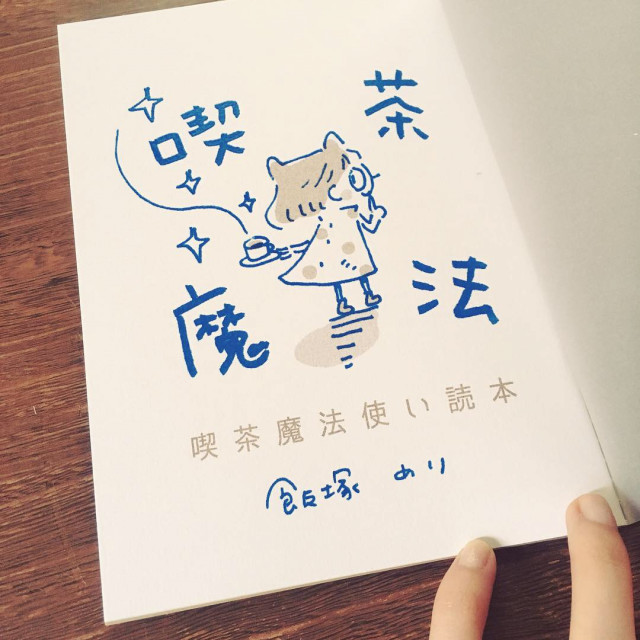 喫茶
魔法
喫茶魔法使い読本
飯塚 めり